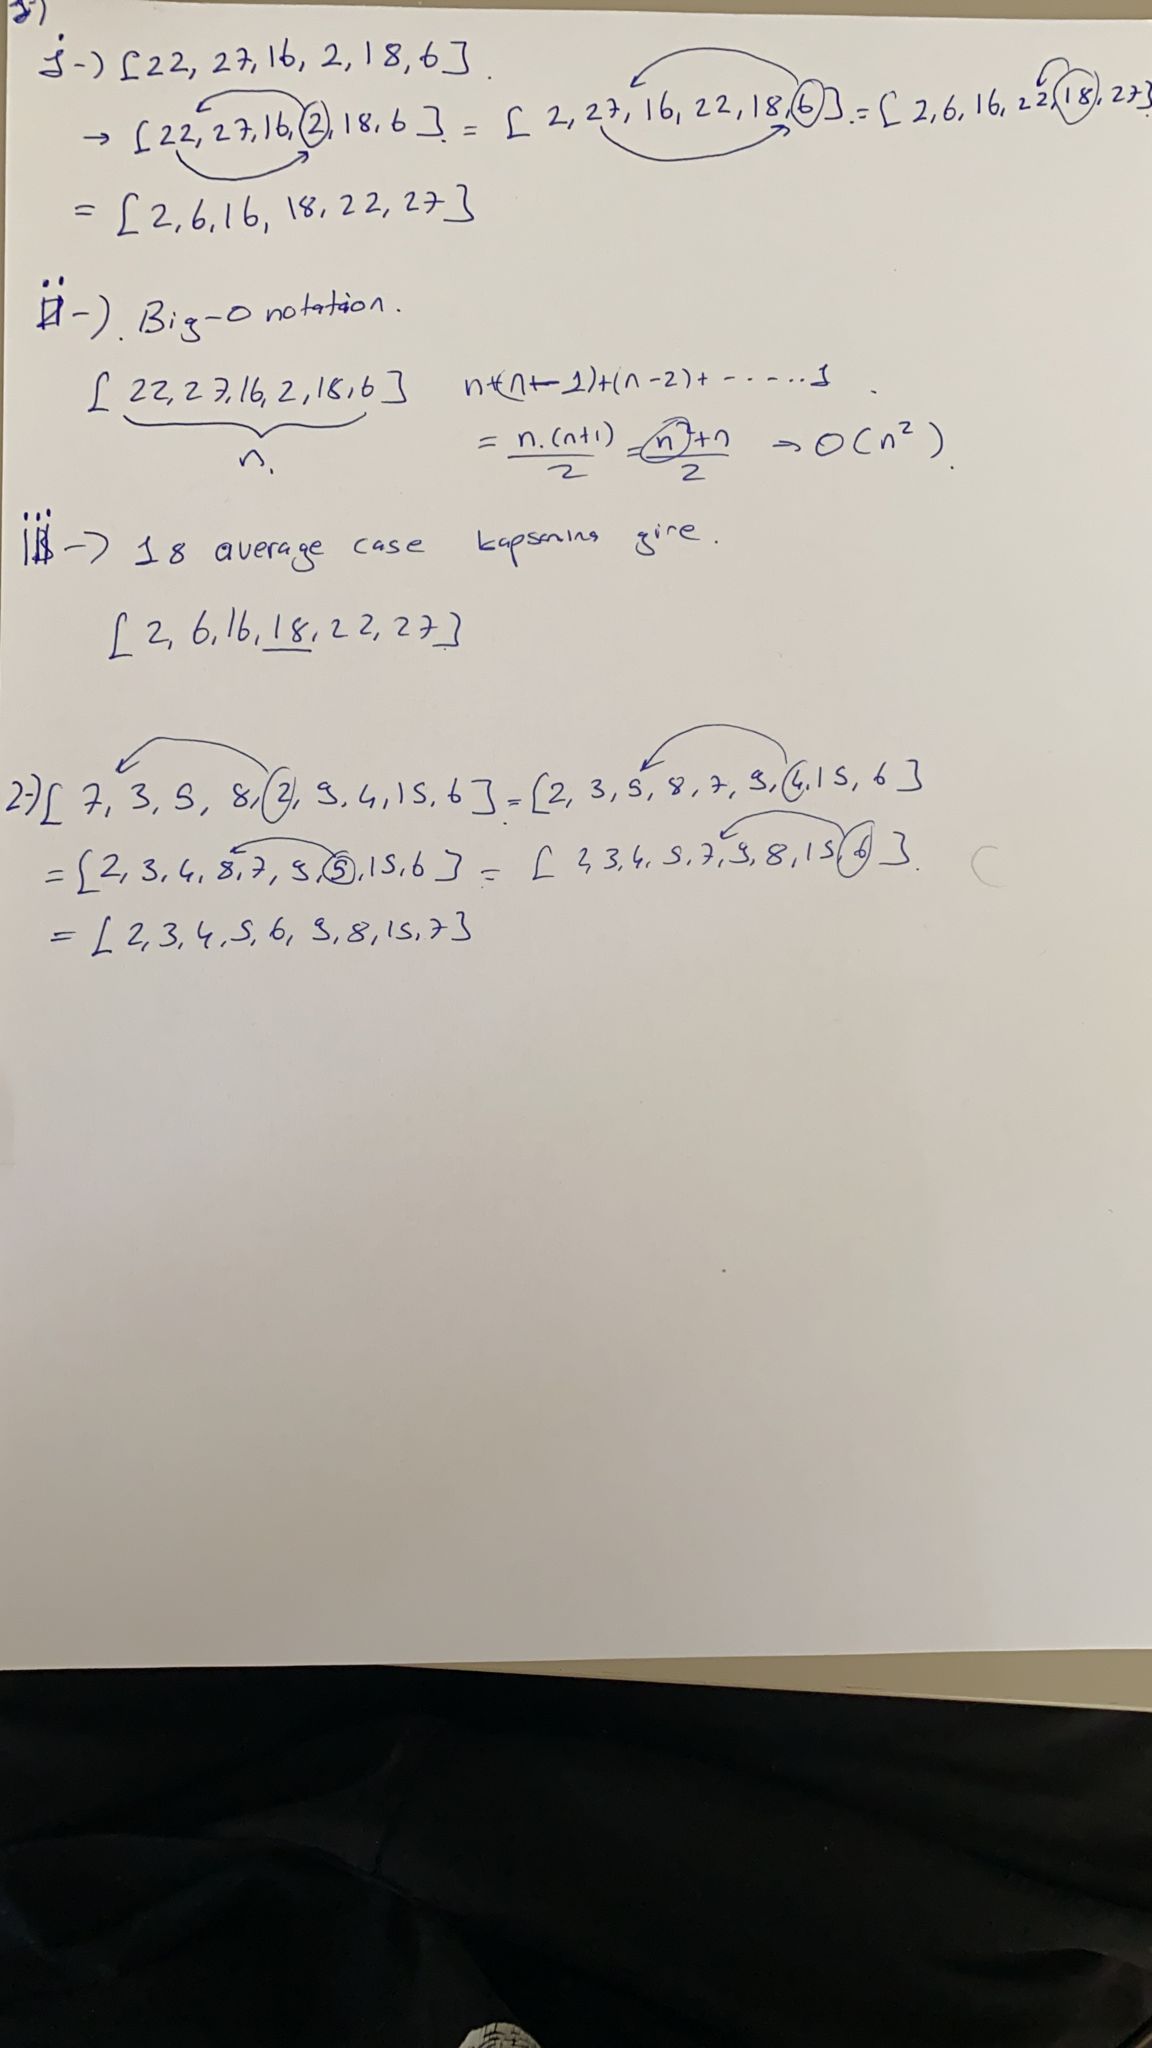 1-)
i-) [22, 27, 16, 2, 18, 6].
→ [22, 27, 16, 2, 18, 6] = [2, 27, 16, 22, 18, 6] = [2, 6, 16, 22, 18, 27]
= [2, 6, 16, 18, 22, 27]
ii-). Big-O notation.
[22, 27, 16, 2, 18, 6] n+(n-1)+(n-2)+ ------ 1
n. = n.(n+1)/2 = n²+n/2 → O(n²).
iii-) 18 average case kapsamına gire.
[2, 6, 16, 18, 22, 27]
2-) [7, 3, 5, 8, 2, 9, 4, 15, 6] = [2, 3, 5, 8, 7, 9, 4, 15, 6]
= [2, 3, 4, 8, 7, 9, 5, 15, 6] = [2, 3, 4, 5, 7, 9, 8, 15, 6].
= [2, 3, 4, 5, 6, 9, 8, 15, 7]